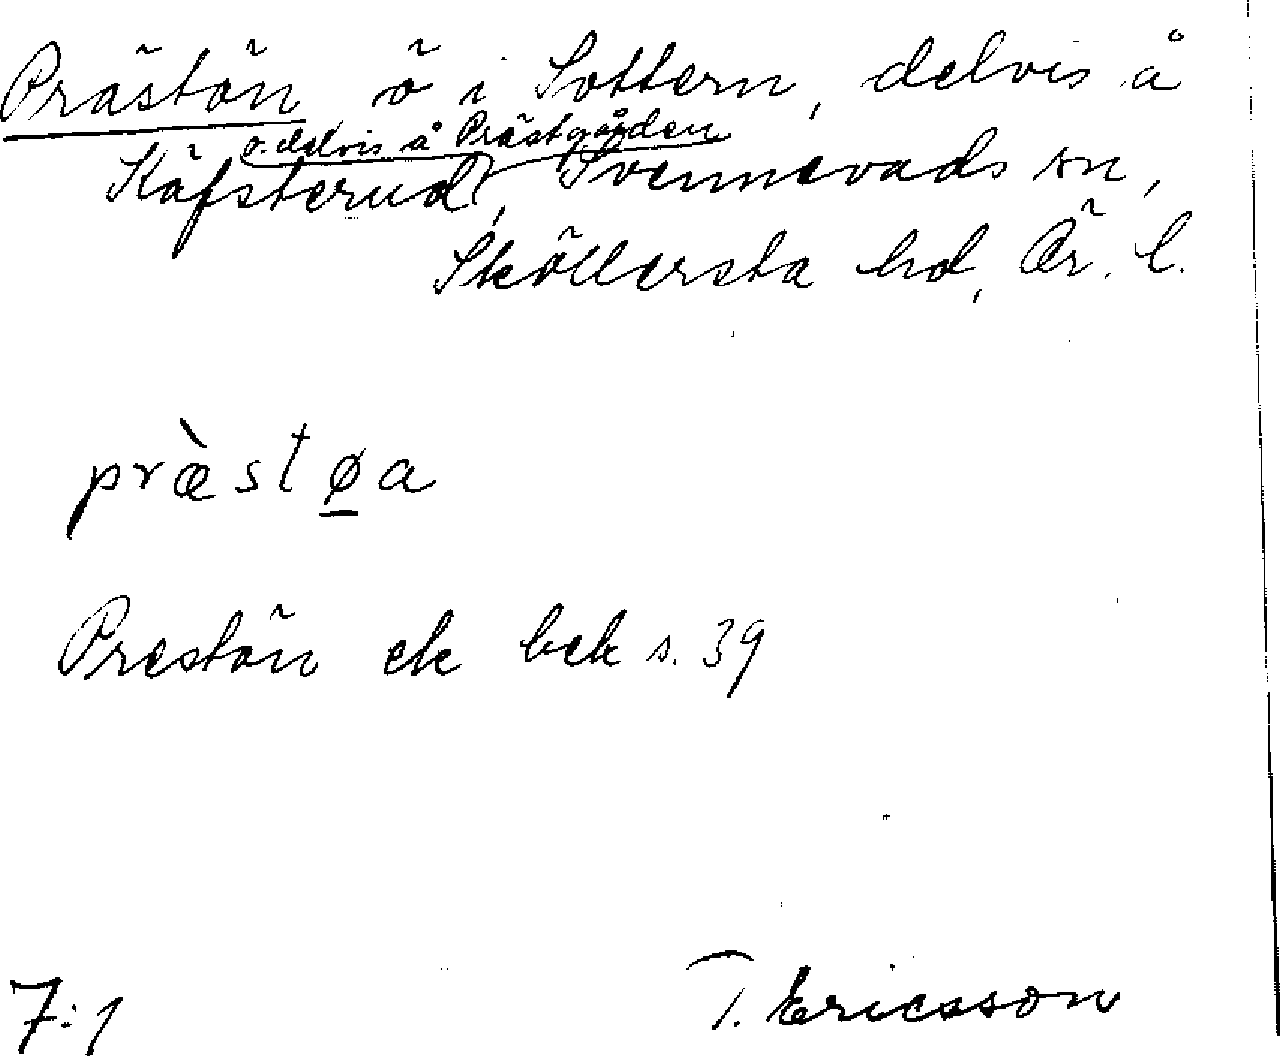 Prästön ö i Sottern, delvis å
o. delvis å Prästgården
Käfsterud, Svennevads sn,
Sköllersta hd, Ör. l.
præ̀støa
Prestön ek bek s. 39
7:1
T. Ericsson